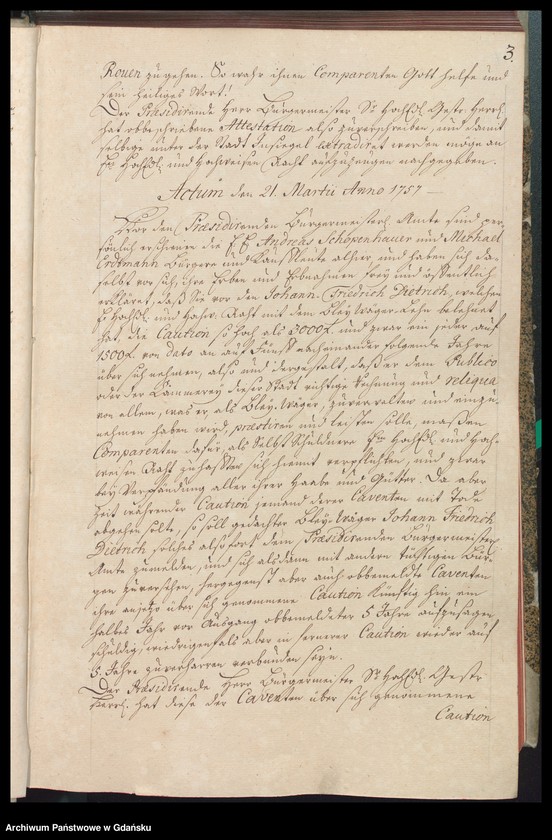 3.
Rouen zugehen. So wahr ihnen Comparenten Gott helfe und
sein heiliges Wort!
Der Præsidirende Herr Bürgermeister Sr Hochedl. Gestr. Herrl.
hat obbeschriebene Attestation also zuverschreiben, und damit
selbige unter der Stadt Insiegel extradiret werden möge an
E. Hochedl. und Hochweisen Raht auszuzeugen nachgegeben.
Actum den 21. Martii Anno 1757
Vor dem Præsidirenden Bürgermeisterl. Amte sind per-
söhnlich erschienen die Andreas Schopenhauer und Michael
Erdtmann Bürgere und Kauffleute alhier, und haben sich da-
selbst vor sich, ihre Erben und Erbnehmen frey und öffentlich
erkläret, daß Sie vor den Johann Friedrich Dietrich, welchen
E. Hochedl. und Hochw. Raht mit dem Bley Wäger Lehn belehnet
hat, die Caution so hoch als 3000 und zwar ein jeder auf
1500 von dato an auf Fünf nacheinander folgende Jahre
über sich nehmen, also und dergestalt, daß er dem Publico
oder der Cämmerey dieser Stadt richtige Rechnung und reliqua
von allem, was er, als Bley-Wäger, zuverwalten und einzu-
nehmen haben wird, præstiren und leisten solle, maßen
Comparenten dafür als Selbst-Schuldnere Em Hochedl. und Hoch-
weisen Raht zuhafften sich hiemit verpflichten, und zwar
bey Verpfändung aller ihrer Haabe und Gütter. Da aber
Zeit währender Caution jemand derer Caventen mit Tode
abgehen solte, so soll gedachter Bley-Wäger Johann Friedrich
Dietrich solches also fort dem Præsidirenden Bürgermeisterl.
Amte zumelden, und sich alsdann mit andern tüchtigen Bür-
gen zuversehen, hergegen aber auch obbemeldte Caventen
ihre anjetzo über sich genommene Caution künftig hin ein
halbes Jahr vor Ausgang obbemeldeter 5 Jahre aufzusagen
schuldig, wiedrigenfals aber in fernerer Caution wieder auf
5. Jahre zuverharren verbunden seyn.
Der Præsidirende Herr Bürgermeister Sr Hochedl. Gestr.
Herrl. hat diese der Caventen über sich genommene
Caution
Archiwum Państwowe w Gdańsku